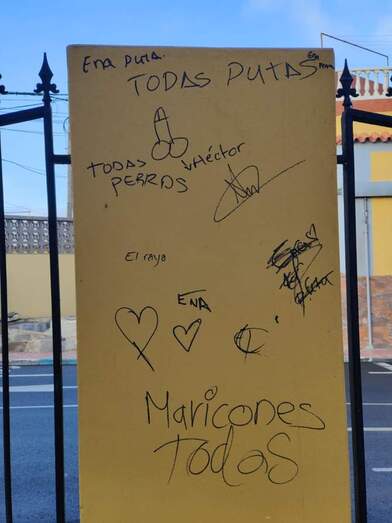 Ena puta.
TODAS PUTAS
TODAS
PERRAS
Héctor
El rayo
ENA
Maricones
Todas